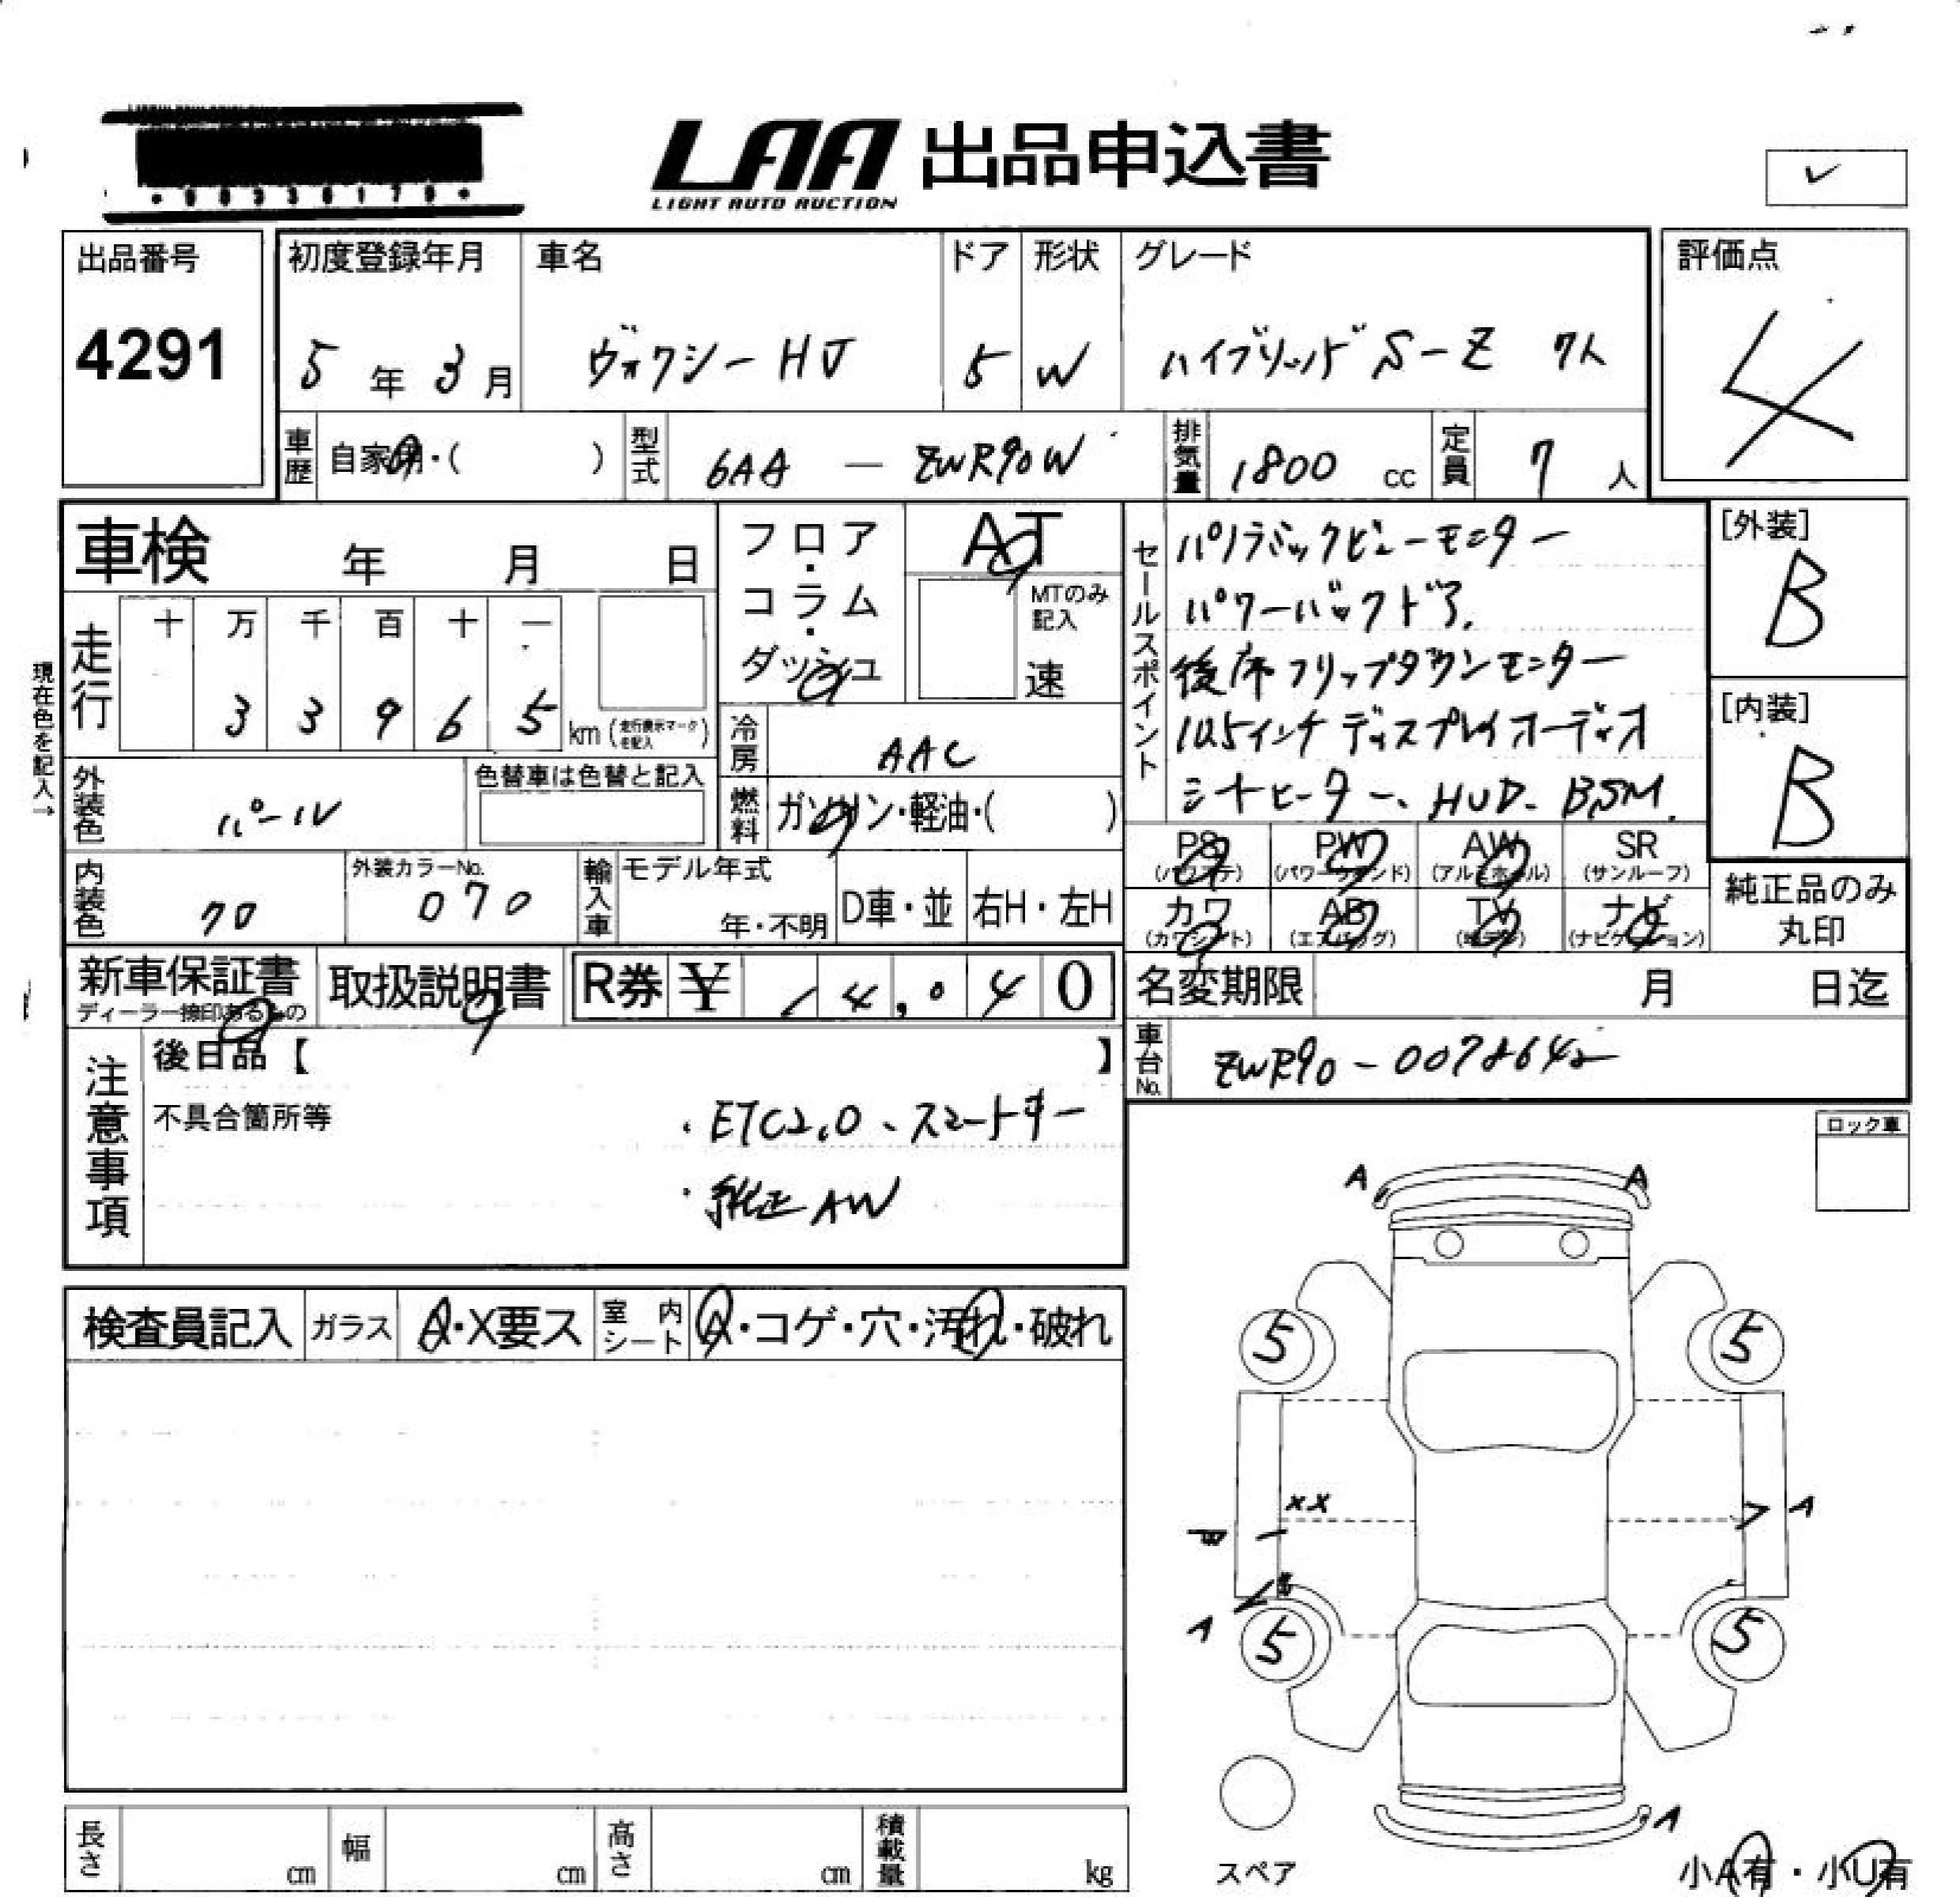 LAA 出品申込書
LIGHT AUTO AUCTION
出品番号
4291
初度登録年月
5年3月
車名
ヴォクシーHV
ドア
5
形状
W
グレード
ハイブリッド S-Z 7人
評価点
4
車歴 自家用・( )
型式 6AA — ZWR90W
排気量 1800 cc
定員 7 人
車検 年 月 日
フロア・コラム・ダッシュ
AT
MTのみ記入
速
セールスポイント
パノラミックビューモニター
パワーバックドア.
後席フリップダウンモニター
10.5インチ ディスプレイオーディオ
シートヒーター、HUD、BSM.
[外装]
B
[内装]
B
現在色を記入→
走行
十 万 千 百 十 一
3 3 9 6 5
km (走行表示マークを記入)
冷房 AAC
燃料 ガソリン・軽油・( )
外装色 パール
色替車は色替と記入
内装色 クロ
外装カラーNo.
070
輸入車
モデル年式
年・不明
D車・並
右H・左H
PS (パワステ)
PW (パワーウィンド)
AW (アルミホイル)
SR (サンルーフ)
カワ (カワシート)
AB (エアバッグ)
TV
ナビ (ナビゲーション)
純正品のみ
丸印
新車保証書
ディーラー捺印あるもの
取扱説明書
R券 ¥ 14,040
名変期限 月 日迄
車台No. ZWR90-
注意事項
後日品【 】
不具合箇所等
・ETC2.0、スマートキー
・純正AW
ロック車
検査員記入
ガラス
A・X要ス
室内シート
A・コゲ・穴・汚れ・破れ
A A
5 5
XX
A
A
5 5
A
スペア
小A有・小U有
長さ cm
幅 cm
高さ cm
積載量 kg